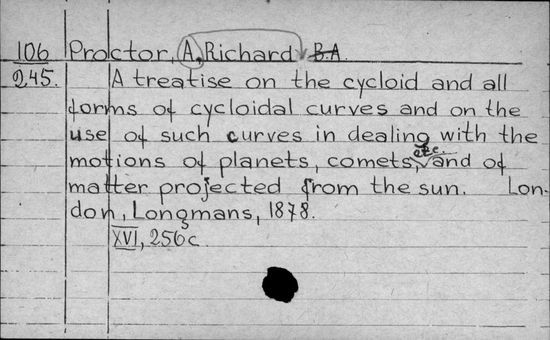 106 Proctor, A. Richard B.A.
245. A treatise on the cycloid and all
forms of cycloidal curves and on the
use of such curves in dealing with the
motions of planets, comets, etc. and of
matter projected from the sun. Lon-
don, Longmans, 1878.
XVI, 256 s c.